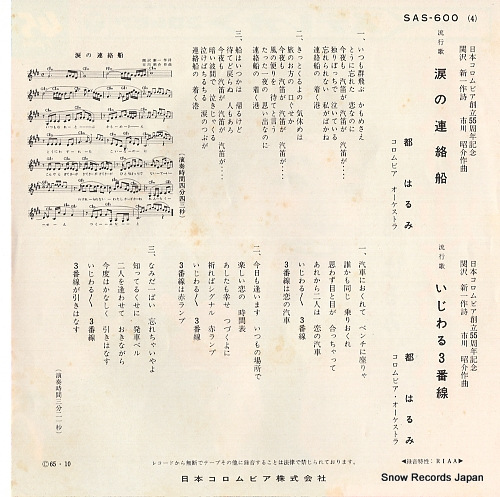 SAS-600 (4)
日本コロムビア創立55周年記念
関沢 新一作詩 市川 昭介作曲
流行歌
涙の連絡船
都 はるみ
コロムビア オーケストラ
一、いつも群飛ぶ かもめさえ
とうに忘れた 恋なのに
今夜も 汽笛が 汽笛が 汽笛が…
独りぼっちで 泣いている
忘れられない 私がばかね
連絡船の 着く港
二、きっとくるよの 気休めは
旅のお方の 口ぐせか
今夜も 汽笛が 汽笛が 汽笛が…
風の便りを 待てと言う
たった一夜の 思い出なのに
連絡船の 着く港
三、船はいつかは 帰るけど
待てど戻らぬ 人あろう
今夜も 汽笛が 汽笛が 汽笛が…
暗い波間で 泣きじゃくる
泣けばちるちる 涙のつぶが
連絡船の 着く港
涙の連絡船
(演奏時間四分四三秒)
日本コロムビア創立55周年記念
関沢 新一作詩 市川 昭介作曲
流行歌
いじわる3番線
都 はるみ
コロムビア・オーケストラ
一、汽車におくれて ベンチに座りゃ
誰かも同じ 乗りおくれ
思わず目と目が 合っちゃって
あれから二人は 恋の汽車
3番線は恋の汽車
二、今日も逢います いつもの場所で
楽しい恋の 時間表
あしたも幸せ つづくよに
祈ればシグナル 赤ランプ
いじわる〳〵 3番線
3番線は赤ランプ
三、なみだ一ぱい 忘れちゃいやよ
知ってるくせに 発車ベル
二人を逢わせて おきながら
今度はかなしく 引きはなす
いじわる〳〵 3番線
3番線が引きはなす
(演奏時間三分二一秒)
Ⓒ65・10
レコードから無断でテープその他に録音することは法律で禁じられております。
◀録音特性：RIAA▶
日本コロムビア株式会社
Snow Records Japan